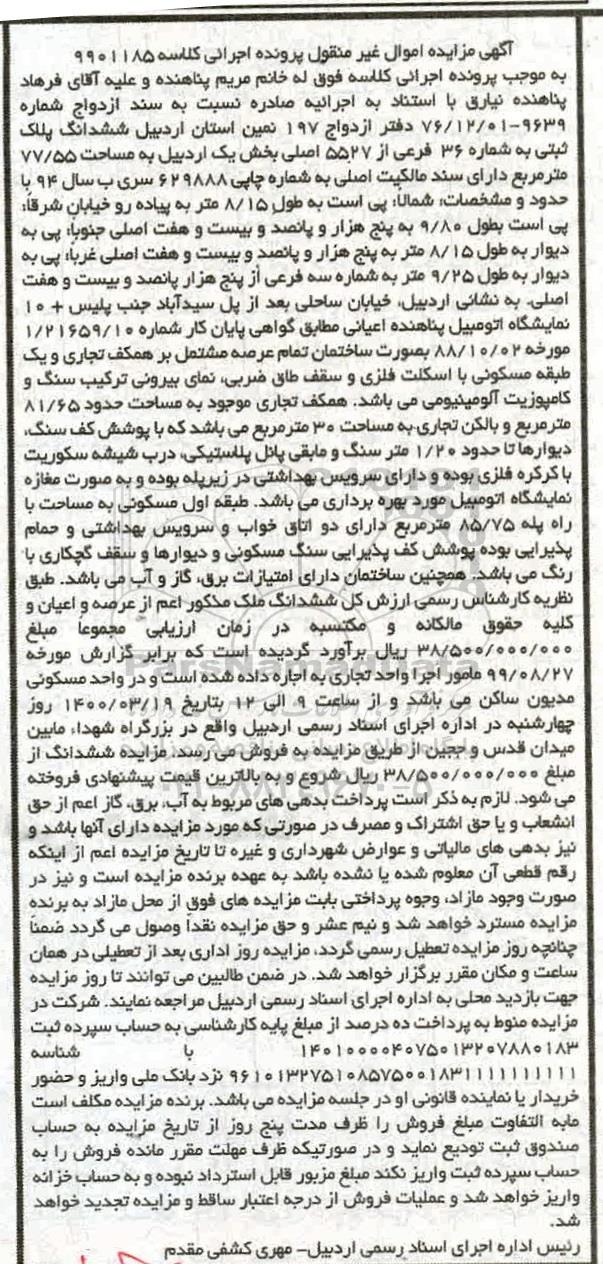 آگهی مزایده اموال غیر منقول پرونده اجرائی کلاسه ۹۹۰۱۱۸۵
به موجب پرونده اجرائی کلاسه فوق له خانم مریم پناهنده و علیه آقای فرهاد
پناهنده نیارق با استناد به اجرائیه صادره نسبت به سند ازدواج شماره
۹۶۳۹-۷۶/۱۲/۰۱ دفتر ازدواج ۱۹۷ نمین استان اردبیل ششدانگ پلاک
ثبتی به شماره ۳۶ فرعی از ۵۵۲۷ اصلی بخش یک اردبیل به مساحت ۷۷/۵۵
مترمربع دارای سند مالکیت اصلی به شماره چاپی ۶۲۹۸۸۸ سری ب سال ۹۴ با
حدود و مشخصات: شمالاً: پی است به طول ۸/۱۵ متر به پیاده رو خیابان شرقاً:
پی است بطول ۹/۸۰ به پنج هزار و پانصد و بیست و هفت اصلی جنوباً: پی به
دیوار به طول ۸/۱۵ متر به پنج هزار و پانصد و بیست و هفت اصلی غرباً: پی به
دیوار به طول ۹/۲۵ متر به شماره سه فرعی از پنج هزار پانصد و بیست و هفت
اصلی. به نشانی اردبیل، خیابان ساحلی بعد از پل سیدآباد جنب پلیس + ۱۰
نمایشگاه اتومبیل پناهنده اعیانی مطابق گواهی پایان کار شماره ۱/۲۱۶۵۹/۱۰
مورخه ۸۸/۱۰/۰۲ بصورت ساختمان تمام عرصه مشتمل بر همکف تجاری و یک
طبقه مسکونی با اسکلت فلزی و سقف طاق ضربی، نمای بیرونی ترکیب سنگ و
کامپوزیت آلومینیومی می باشد. همکف تجاری موجود به مساحت حدود ۸۱/۶۵
مترمربع و بالکن تجاری به مساحت ۳۰ مترمربع می باشد که با پوشش کف سنگ،
دیوارها تا حدود ۱/۲۰ متر سنگ و مابقی پانل پلاستیکی، درب شیشه سکوریت
با کرکره فلزی بوده و دارای سرویس بهداشتی در زیرپله بوده و به صورت مغازه
نمایشگاه اتومبیل مورد بهره برداری می باشد. طبقه اول مسکونی به مساحت با
راه پله ۸۵/۷۵ مترمربع دارای دو اتاق خواب و سرویس بهداشتی و حمام
پذیرایی بوده پوشش کف پذیرایی سنگ مسکونی و دیوارها و سقف گچکاری با
رنگ می باشد. همچنین ساختمان دارای امتیازات برق، گاز و آب می باشد. طبق
نظریه کارشناس رسمی ارزش کل ششدانگ ملک مذکور اعم از عرصه و اعیان و
کلیه حقوق مالکانه و مکتسبه در زمان ارزیابی مجموعاً مبلغ
۳۸/۵۰۰/۰۰۰/۰۰۰ ریال برآورد گردیده است که برابر گزارش مورخه
۹۹/۰۸/۲۷ مامور اجرا واحد تجاری به اجاره داده شده است و در واحد مسکونی
مدیون ساکن می باشد و از ساعت ۹ الی ۱۲ بتاریخ ۱۴۰۰/۰۳/۱۹ روز
چهارشنبه در اداره اجرای اسناد رسمی اردبیل واقع در بزرگراه شهداء مابین
میدان قدس و ججین از طریق مزایده به فروش می رسد. مزایده ششدانگ از
مبلغ ۳۸/۵۰۰/۰۰۰/۰۰۰ ریال شروع و به بالاترین قیمت پیشنهادی فروخته
می شود. لازم به ذکر است پرداخت بدهی های مربوط به آب، برق، گاز اعم از حق
انشعاب و یا حق اشتراک و مصرف در صورتی که مورد مزایده دارای آنها باشد و
نیز بدهی های مالیاتی و عوارض شهرداری و غیره تا تاریخ مزایده اعم از اینکه
رقم قطعی آن معلوم شده یا نشده باشد به عهده برنده مزایده است و نیز در
صورت وجود مازاد، وجوه پرداختی بابت مزایده های فوق از محل مازاد به برنده
مزایده مسترد خواهد شد و نیم عشر و حق مزایده نقداً وصول می گردد ضمناً
چنانچه روز مزایده تعطیل رسمی گردد، مزایده روز اداری بعد از تعطیلی در همان
ساعت و مکان مقرر برگزار خواهد شد. در ضمن طالبین می توانند تا روز مزایده
جهت بازدید محلی به اداره اجرای اسناد رسمی اردبیل مراجعه نمایند. شرکت در
مزایده منوط به پرداخت ده درصد از مبلغ پایه کارشناسی به حساب سپرده ثبت
۱۴۰۱۰۰۰۰۴۰۷۵۰۱۳۲۰۷۸۸۰۱۸۳ با شناسه
۹۶۱۰۱۳۲۷۵۱۰۸۵۷۵۰۰۱۸۳۱۱۱۱۱۱۱۱۱۱ نزد بانک ملی واریز و حضور
خریدار یا نماینده قانونی او در جلسه مزایده می باشد. برنده مزایده مکلف است
مابه التفاوت مبلغ فروش را ظرف مدت پنج روز از تاریخ مزایده به حساب
صندوق ثبت تودیع نماید و در صورتیکه ظرف مهلت مقرر مانده فروش را به
حساب سپرده ثبت واریز نکند مبلغ مزبور قابل استرداد نبوده و به حساب خزانه
واریز خواهد شد و عملیات فروش از درجه اعتبار ساقط و مزایده تجدید خواهد
شد.
رئیس اداره اجرای اسناد رسمی اردبیل- مهری کشفی مقدم